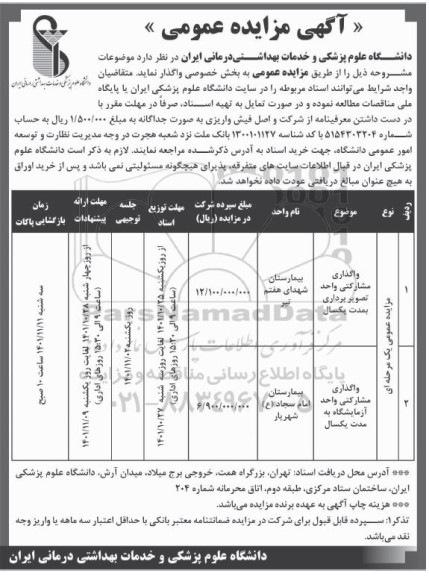 « آگهی مزایده عمومی »
دانشگاه علوم پزشکی و خدمات بهداشتی درمانی ایران
دانشـگاه علوم پزشکی و خدمات بهداشـتی‌درمانی ایران در نظر دارد موضوعات
مشـروحه ذیل را از طریق مزایده عمومی به بخش خصوصی واگذار نماید. متقاضیان
واجد شرایط می‌توانند اسناد مربوطه را در سایت دانشگاه علوم پزشکی ایران یا پایگاه
ملی مناقصات مطالعه نموده و در صورت تمایل به تهیه اسـناد، صرفاً در مهلت مقرر با
در دست داشتن معرفینامه از شرکت و اصل فیش واریزی به صورت جداگانه به مبلغ ۱/۵۰۰/۰۰۰ ریال به حساب
شمـاره ۵۱۵۴۳۰۳۲۰۴ با کد شناسه ۱۳۰۰۱۰۱۱۲۷ بانک ملت نزد شعبه هجرت در وجه مدیریت نظارت و توسعه
امور عمومی دانشگاه، جهت خرید اسناد به آدرس ذکرشـده مراجعه نمایند. لازم به ذکر است دانشگاه علوم
پزشکی ایران در قبال اطلاعات سایت های متفرقه، پذیرای هیچگونه مسئولیتی نمی باشد و پس از خرید اوراق
به هیچ عنوان مبالغ دریافتی عودت داده نخواهد شد.
ردیف نوع موضوع نام واحد مبلغ سپرده شرکت در مزایده (ریال) مهلت توزیع اسناد جلسه توجیهی مهلت ارائه پیشنهادات زمان بازگشایی پاکات
۱ مزایده عمومی یک مرحله ای واگذاری مشارکتی واحد تصویربرداری بمدت یکسال بیمارستان شهدای هفتم تیر ۱۲/۱۰۰/۰۰۰/۰۰۰
از روزیکشنبه ۱۴۰۱/۱۰/۲۵ لغایت روزسه شنبه ۱۴۰۱/۱۰/۲۷ (ساعت ۹ الی ۱۵:۳۰ روزهای اداری)
روز یکشنبه ۱۴۰۱/۱۱/۰۲
از روزچهار شنبه ۱۴۰۱/۱۰/۲۸ لغایت روز یکشنبه ۱۴۰۱/۱۱/۰۹ (ساعت ۹ الی ۱۵:۳۰ روزهای اداری)
سه شنبه ۱۴۰۱/۱۱/۱۱ ساعت ۱۰ صبح
۲ واگذاری مشارکتی واحد آزمایشگاه به مدت یکسال بیمارستان امام سجاد(ع) شهریار ۶/۹۰۰/۰۰۰/۰۰۰
پایگاه اطلاع رسانی مناقصه و مزایده
۰۲۱-۸۸۳۴۹۶۷۰-۵
*** آدرس محل دریافت اسناد: تهران، بزرگراه همت، خروجی برج میلاد، میدان آرش، دانشگاه علوم پزشکی
ایران، ساختمان ستاد مرکزی، طبقه دوم، اتاق محرمانه شماره ۲۰۴
*** هزینه چاپ آگهی به عهده برنده مزایده می‌باشد.
تذکر۱: سـپرده قابل قبول برای شرکت در مزایده ضمانتنامه معتبر بانکی با حداقل اعتبار سه ماهه یا واریز وجه
نقد می‌باشد.
دانشگاه علوم پزشکی و خدمات بهداشتی درمانی ایران